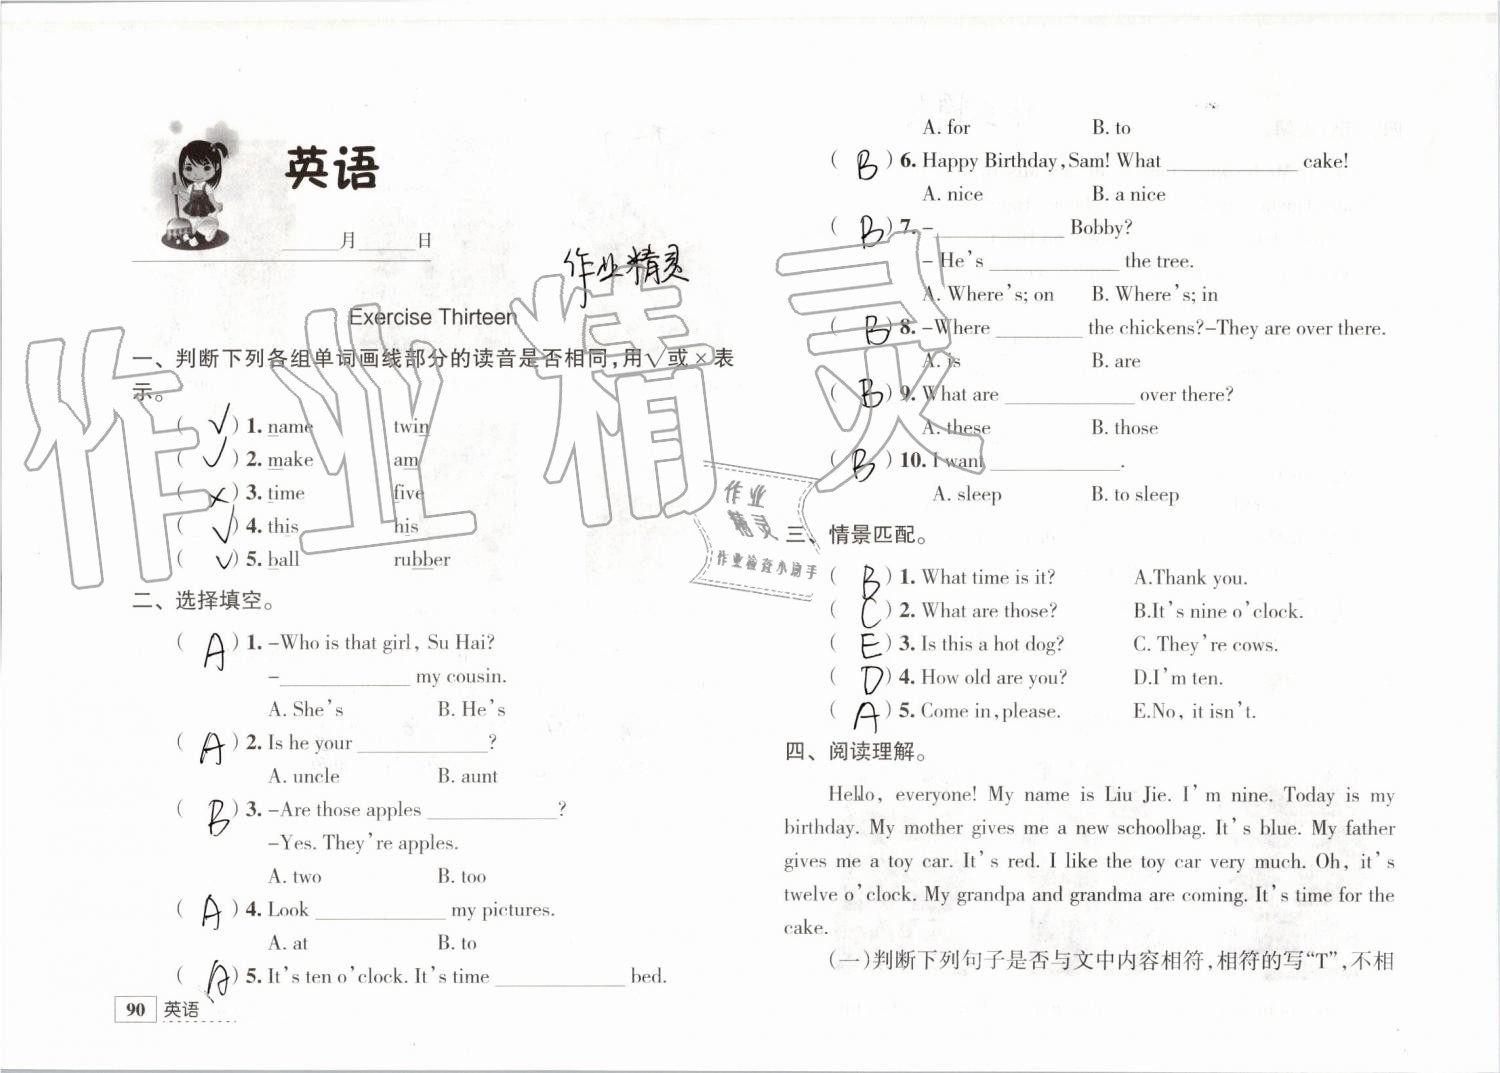 英语
______月______日
作业精灵
Exercise Thirteen
一、判断下列各组单词画线部分的读音是否相同,用√或×表
示。
( √ ) 1. name twin
( √ ) 2. make am
( × ) 3. time five
( √ ) 4. this his
( √ ) 5. ball rubber
二、选择填空。
( A ) 1. –Who is that girl, Su Hai?
–____________ my cousin.
A. She's B. He's
( A ) 2. Is he your ____________?
A. uncle B. aunt
( B ) 3. –Are those apples ____________?
–Yes. They're apples.
A. two B. too
( A ) 4. Look ____________ my pictures.
A. at B. to
( A ) 5. It's ten o'clock. It's time ____________ bed.
90 英语
A. for B. to
( B ) 6. Happy Birthday, Sam! What ____________ cake!
A. nice B. a nice
( B ) 7. –____________ Bobby?
– He's ____________ the tree.
A. Where's; on B. Where's; in
( B ) 8. –Where ________ the chickens?–They are over there.
A. is B. are
( B ) 9. What are ____________ over there?
A. these B. those
( B ) 10. I want ____________.
A. sleep B. to sleep
三、情景匹配。
( B ) 1. What time is it? A.Thank you.
( C ) 2. What are those? B.It's nine o'clock.
( E ) 3. Is this a hot dog? C. They're cows.
( D ) 4. How old are you? D.I'm ten.
( A ) 5. Come in, please. E.No, it isn't.
四、阅读理解。
Hello, everyone! My name is Liu Jie. I'm nine. Today is my
birthday. My mother gives me a new schoolbag. It's blue. My father
gives me a toy car. It's red. I like the toy car very much. Oh, it's
twelve o'clock. My grandpa and grandma are coming. It's time for the
cake.
(一)判断下列句子是否与文中内容相符,相符的写“T”,不相
作业精灵
作业
精灵
作业检查小助手